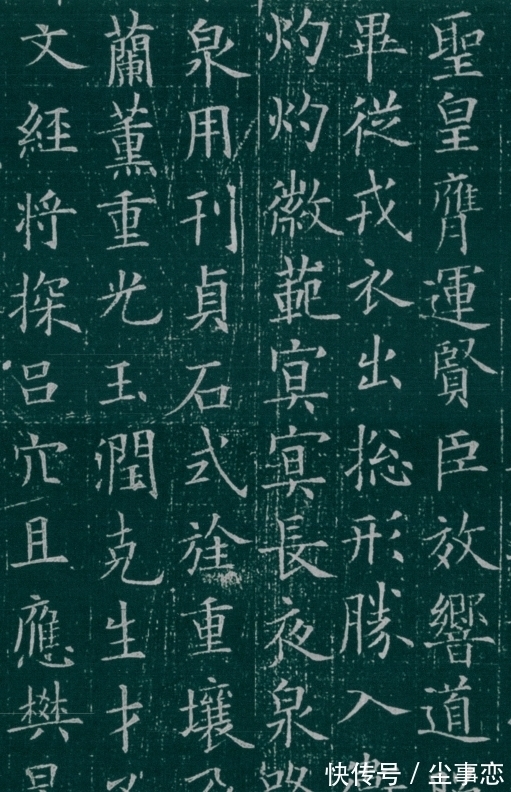 聖皇膺運賢臣效響道
畢從戎衣出揔形勝入
灼灼徽範㝠㝠長夜泉
泉用刊貞石式旌重壤
蘭薰重光玉潤克生才
文經将探吕穴且應樊
快传号 / 尘事恋